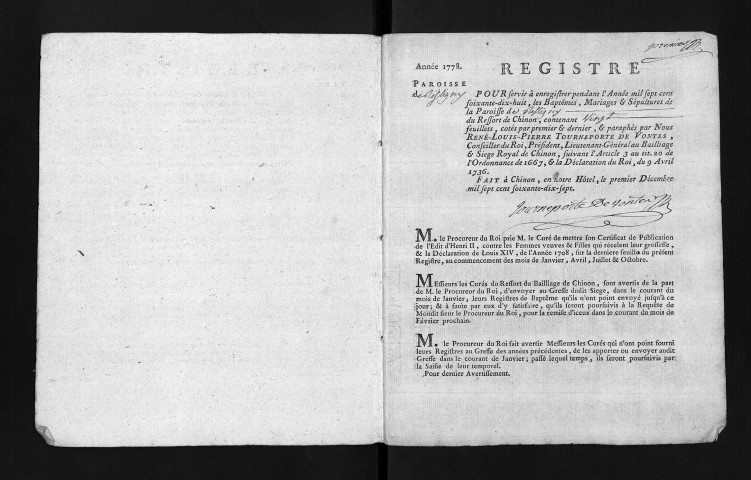 premier
Année 1778. REGISTRE
PAROISSE
de Restigny POUR servir à enregistrer pendant l'Année mil sept cent
soixante-dix-huit, les Baptêmes, Mariages & Sépultures de
la Paroisse de Restigny
du Ressort de Chinon, contenant Vingt
feuillets, cotés par premier & dernier, & paraphés par Nous
RENÉ-LOUIS-PIERRE TOURNEPORTE DE VONTES,
Conseiller du Roi, Président, Lieutenant-Général au Bailliage
& Siege Royal de Chinon, suivant l'Article 3 au tit. 20 de
l'Ordonnance de 1667, & la Déclaration du Roi, du 9 Avril
1736.
FAIT à Chinon, en notre Hôtel, le premier Décembre
mil sept cent soixante-dix-sept.
Tourneporte De Vontes
M. le Procureur du Roi prie M. le Curé de mettre son Certificat de Publication
de l'Edit d'Henri II, contre les Femmes veuves & Filles qui récelent leur grossesse,
& la Déclaration de Louis XIV, de l'Année 1708, sur la derniere feuille du présent
Registre, au commencement des mois de Janvier, Avril, Juillet & Octobre.
MESSIEURS les Curés du Ressort du Bailliage de Chinon, sont avertis de la part
de M. le Procureur du Roi, d'envoyer au Greffe dudit Siege, dans le courant du
mois de Janvier, leurs Registres de Baptême qu'ils n'ont point envoyé jusqu'à ce
jour; & à faute par eux d'y satisfaire, qu'ils seront poursuivis à la Requête de
Mondit sieur le Procureur du Roi, pour la remise d'iceux dans le courant du mois de
Février prochain.
M. le Procureur du Roi fait avertir Messieurs les Curés qui n'ont point fourni
leurs Registres au Greffe des années précédentes, de les apporter ou envoyer audit
Greffe dans le courant de Janvier; passé lequel temps, ils seront poursuivis par
la Saisie de leur temporel.
Pour dernier Avertissement.